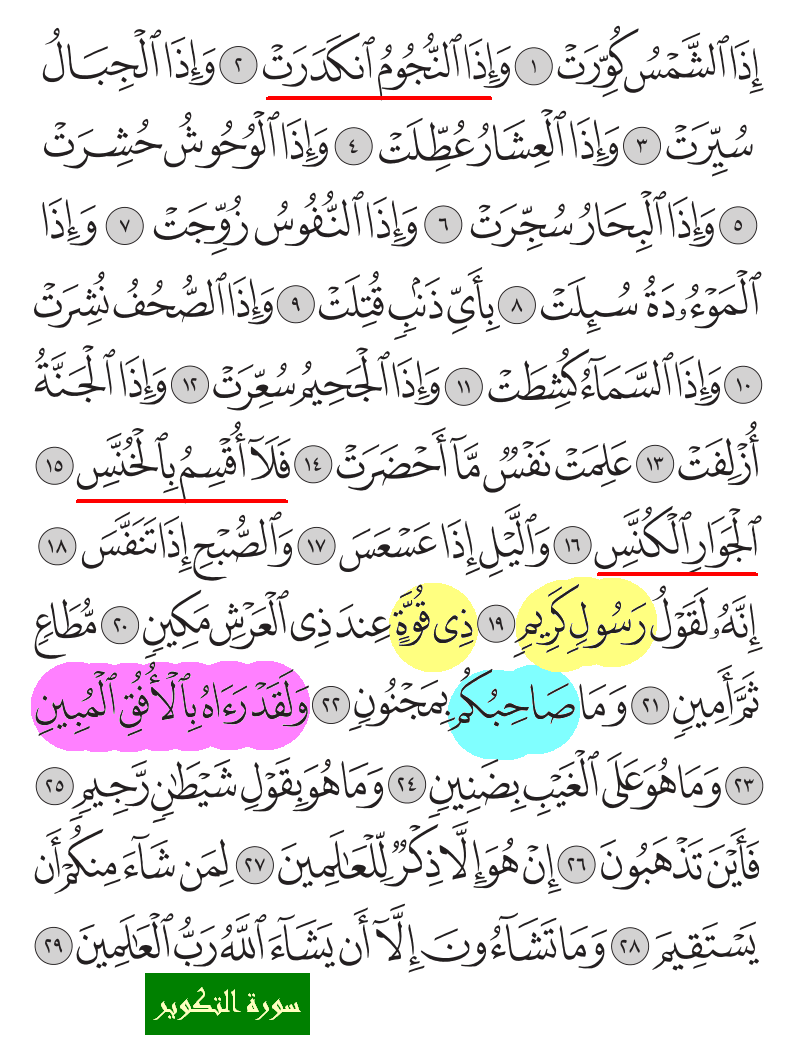 إِذَا ٱلشَّمْسُ كُوِّرَتْ ١ وَإِذَا ٱلنُّجُومُ ٱنكَدَرَتْ ٢ وَإِذَا ٱلْجِبَالُ
سُيِّرَتْ ٣ وَإِذَا ٱلْعِشَارُ عُطِّلَتْ ٤ وَإِذَا ٱلْوُحُوشُ حُشِرَتْ
٥ وَإِذَا ٱلْبِحَارُ سُجِّرَتْ ٦ وَإِذَا ٱلنُّفُوسُ زُوِّجَتْ ٧ وَإِذَا
ٱلْمَوْءُۥدَةُ سُئِلَتْ ٨ بِأَىِّ ذَنۢبٍ قُتِلَتْ ٩ وَإِذَا ٱلصُّحُفُ نُشِرَتْ
١٠ وَإِذَا ٱلسَّمَآءُ كُشِطَتْ ١١ وَإِذَا ٱلْجَحِيمُ سُعِّرَتْ ١٢ وَإِذَا ٱلْجَنَّةُ
أُزْلِفَتْ ١٣ عَلِمَتْ نَفْسٌ مَّآ أَحْضَرَتْ ١٤ فَلَآ أُقْسِمُ بِٱلْخُنَّسِ ١٥
ٱلْجَوَارِ ٱلْكُنَّسِ ١٦ وَٱلَّيْلِ إِذَا عَسْعَسَ ١٧ وَٱلصُّبْحِ إِذَا تَنَفَّسَ ١٨
إِنَّهُۥ لَقَوْلُ رَسُولٍ كَرِيمٍ ١٩ ذِى قُوَّةٍ عِندَ ذِى ٱلْعَرْشِ مَكِينٍ ٢٠ مُّطَاعٍ
ثَمَّ أَمِينٍ ٢١ وَمَا صَاحِبُكُم بِمَجْنُونٍ ٢٢ وَلَقَدْ رَءَاهُ بِٱلْأُفُقِ ٱلْمُبِينِ
٢٣ وَمَا هُوَ عَلَى ٱلْغَيْبِ بِضَنِينٍ ٢٤ وَمَا هُوَ بِقَوْلِ شَيْطَٰنٍ رَّجِيمٍ ٢٥
فَأَيْنَ تَذْهَبُونَ ٢٦ إِنْ هُوَ إِلَّا ذِكْرٌ لِّلْعَٰلَمِينَ ٢٧ لِمَن شَآءَ مِنكُمْ أَن
يَسْتَقِيمَ ٢٨ وَمَا تَشَآءُونَ إِلَّآ أَن يَشَآءَ ٱللَّهُ رَبُّ ٱلْعَٰلَمِينَ ٢٩
سورة التكوير